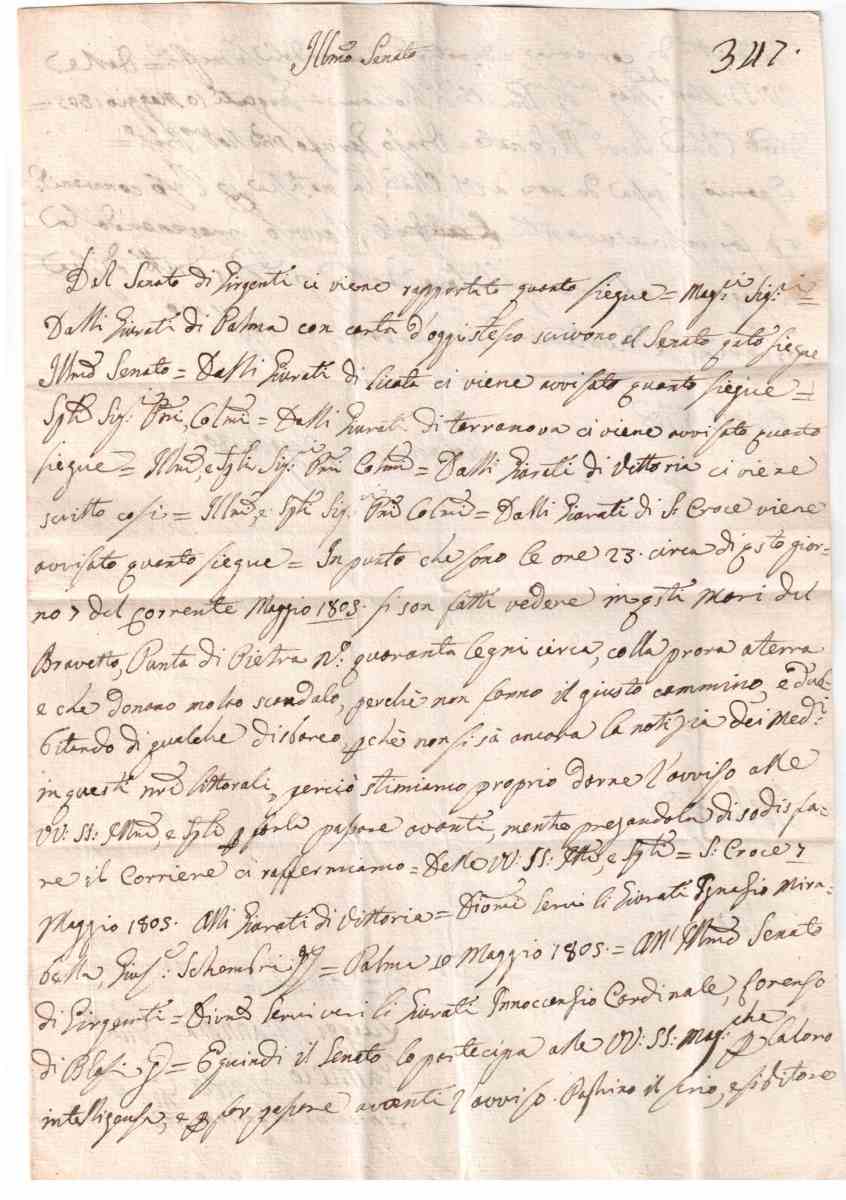 Illmo Senato
347.
Dal Senato di Girgenti ci viene rapportato quanto siegue = Mag:ci Sig:ri =
Dalli Giurati di Palma con carta d'oggi stesso scrivono al Senato qnto siegue
Illmo Senato = Dalli Giurati di Licata ci viene avvisato quanto siegue =
Spli Sig:i Pni Colmi = Dalli Giurati di terranova ci viene avvisato quanto
siegue = Illmi, e Spli Sig:i Pni Colmi = Dalli Giurati di Vittoria ci viene
scritto così = Illmi, e Spli Sig:i Pni Colmi = Dalli Giurati di S: Croce viene
avvisato quanto siegue = In punto che sono le ore 23. circa di qsto gior-
no 7 del corrente Maggio 1805. si son fatti vedere in qsti Mari del
Bravetto, Punta di Pietra No. quaranta legni circa, colla prora a terra
e che donano molto scandalo, perchè non fanno il giusto cammino, e dub-
bitando di qualche disbarco, pchè non si sà ancora la notizia dei Med:i
in questi nri littorali, perciò stimiamo proprio darne l'avviso alle
VV: SS: Illme, e Spli p farla passare avanti, mentre pregandola di sodisfa-
re il Corriere ci raffermiamo = Delle VV: SS: Illme, e Spli = S: Croce 7
Maggio 1805. Alli Giurati di Vittoria = Divmi Servi li Giurati Ignazio Mira-
bella, Gius: Schembri = Palma 10 Maggio 1805. = All' Illmo Senato
di Girgenti = Divmi Servi veri li Giurati Innocenzio Cardinale, Lorenzo
di Blasi = E quindi il Senato lo partecipa alle VV: SS: Mag:che p la loro
intelligenza, e p far passare avanti l'avviso. Paghino il